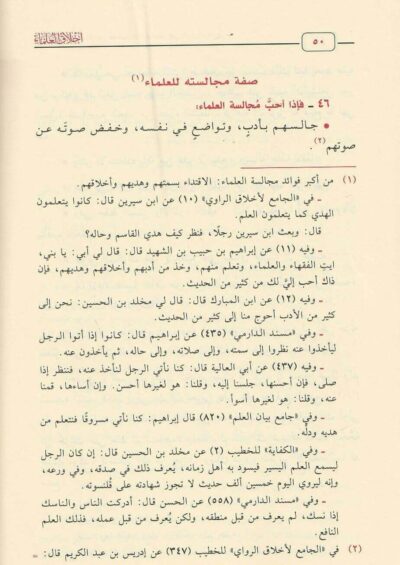 ٥٠
أخلاق العلماء
صفة مجالسته للعلماء(١)
٤٦ ـ فإذا أحبَّ مُجالسة العلماء:
● جالسهم بأدبٍ، وتواضعٍ في نفسه، وخفض صوتَه عن
صوتهم(٢).
(١) من أكبر فوائد مجالسة العلماء: الاقتداء بسمتهم وهديهم وأخلاقهم.
ـ في «الجامع لأخلاق الراوي» (١٠) عن ابن سيرين قال: كانوا يتعلمون
الهدي كما يتعلمون العلم.
قال: وبعث ابن سيرين رجلًا، فنظر كيف هدي القاسم وحاله؟
ـ وفيه (١١) عن إبراهيم بن حبيب بن الشهيد قال: قال لي أبي: يا بني،
ايتِ الفقهاء والعلماء، وتعلم منهم، وخذ من أدبهم وأخلاقهم وهديهم، فإن
ذاك أحب إليَّ لك من كثير من الحديث.
ـ وفيه (١٢) عن ابن المبارك قال: قال لي مخلد بن الحسين: نحن إلى
كثير من الأدب أحوج منا إلى كثير من الحديث.
ـ وفي «مسند الدارمي» (٤٣٥) عن إبراهيم قال: كانوا إذا أتوا الرجل
ليأخذوا عنه نظروا إلى سمته، وإلى صلاته، وإلى حاله، ثم يأخذون عنه.
ـ وفيه (٤٣٧) عن أبي العالية قال: كنا نأتي الرجل لنأخذ عنه، فننظر إذا
صلى، فإن أحسنها، جلسنا إليه، وقلنا: هو لغيرها أحسن. وإن أساءها، قمنا
عنه، وقلنا: هو لغيرها أسوأ.
ـ وفي «جامع بيان العلم» (٨٢٠) قال إبراهيم: كنا نأتي مسروقًا فنتعلم من
هديه ودلِّه.
ـ وفي «الكفاية» للخطيب (٢) عن مخلد بن الحسين قال: إن كان الرجل
ليسمع العلم اليسير فيسود به أهل زمانه، يُعرف ذلك في صدقه، وفي ورعه،
وإنه ليروي اليوم خمسين ألف حديث لا تجوز شهادته على قُلنسوته.
ـ وفي «مسند الدارمي» (٥٥٨) عن الحسن قال: أدركت الناس والناسك
إذا نسك، لم يعرف من قبل منطقه، ولكن يُعرف من قبل عمله، فذلك العلم
النافع.
(٢) في «الجامع لأخلاق الراوي» للخطيب (٣٤٧) عن إدريس بن عبد الكريم قال: =